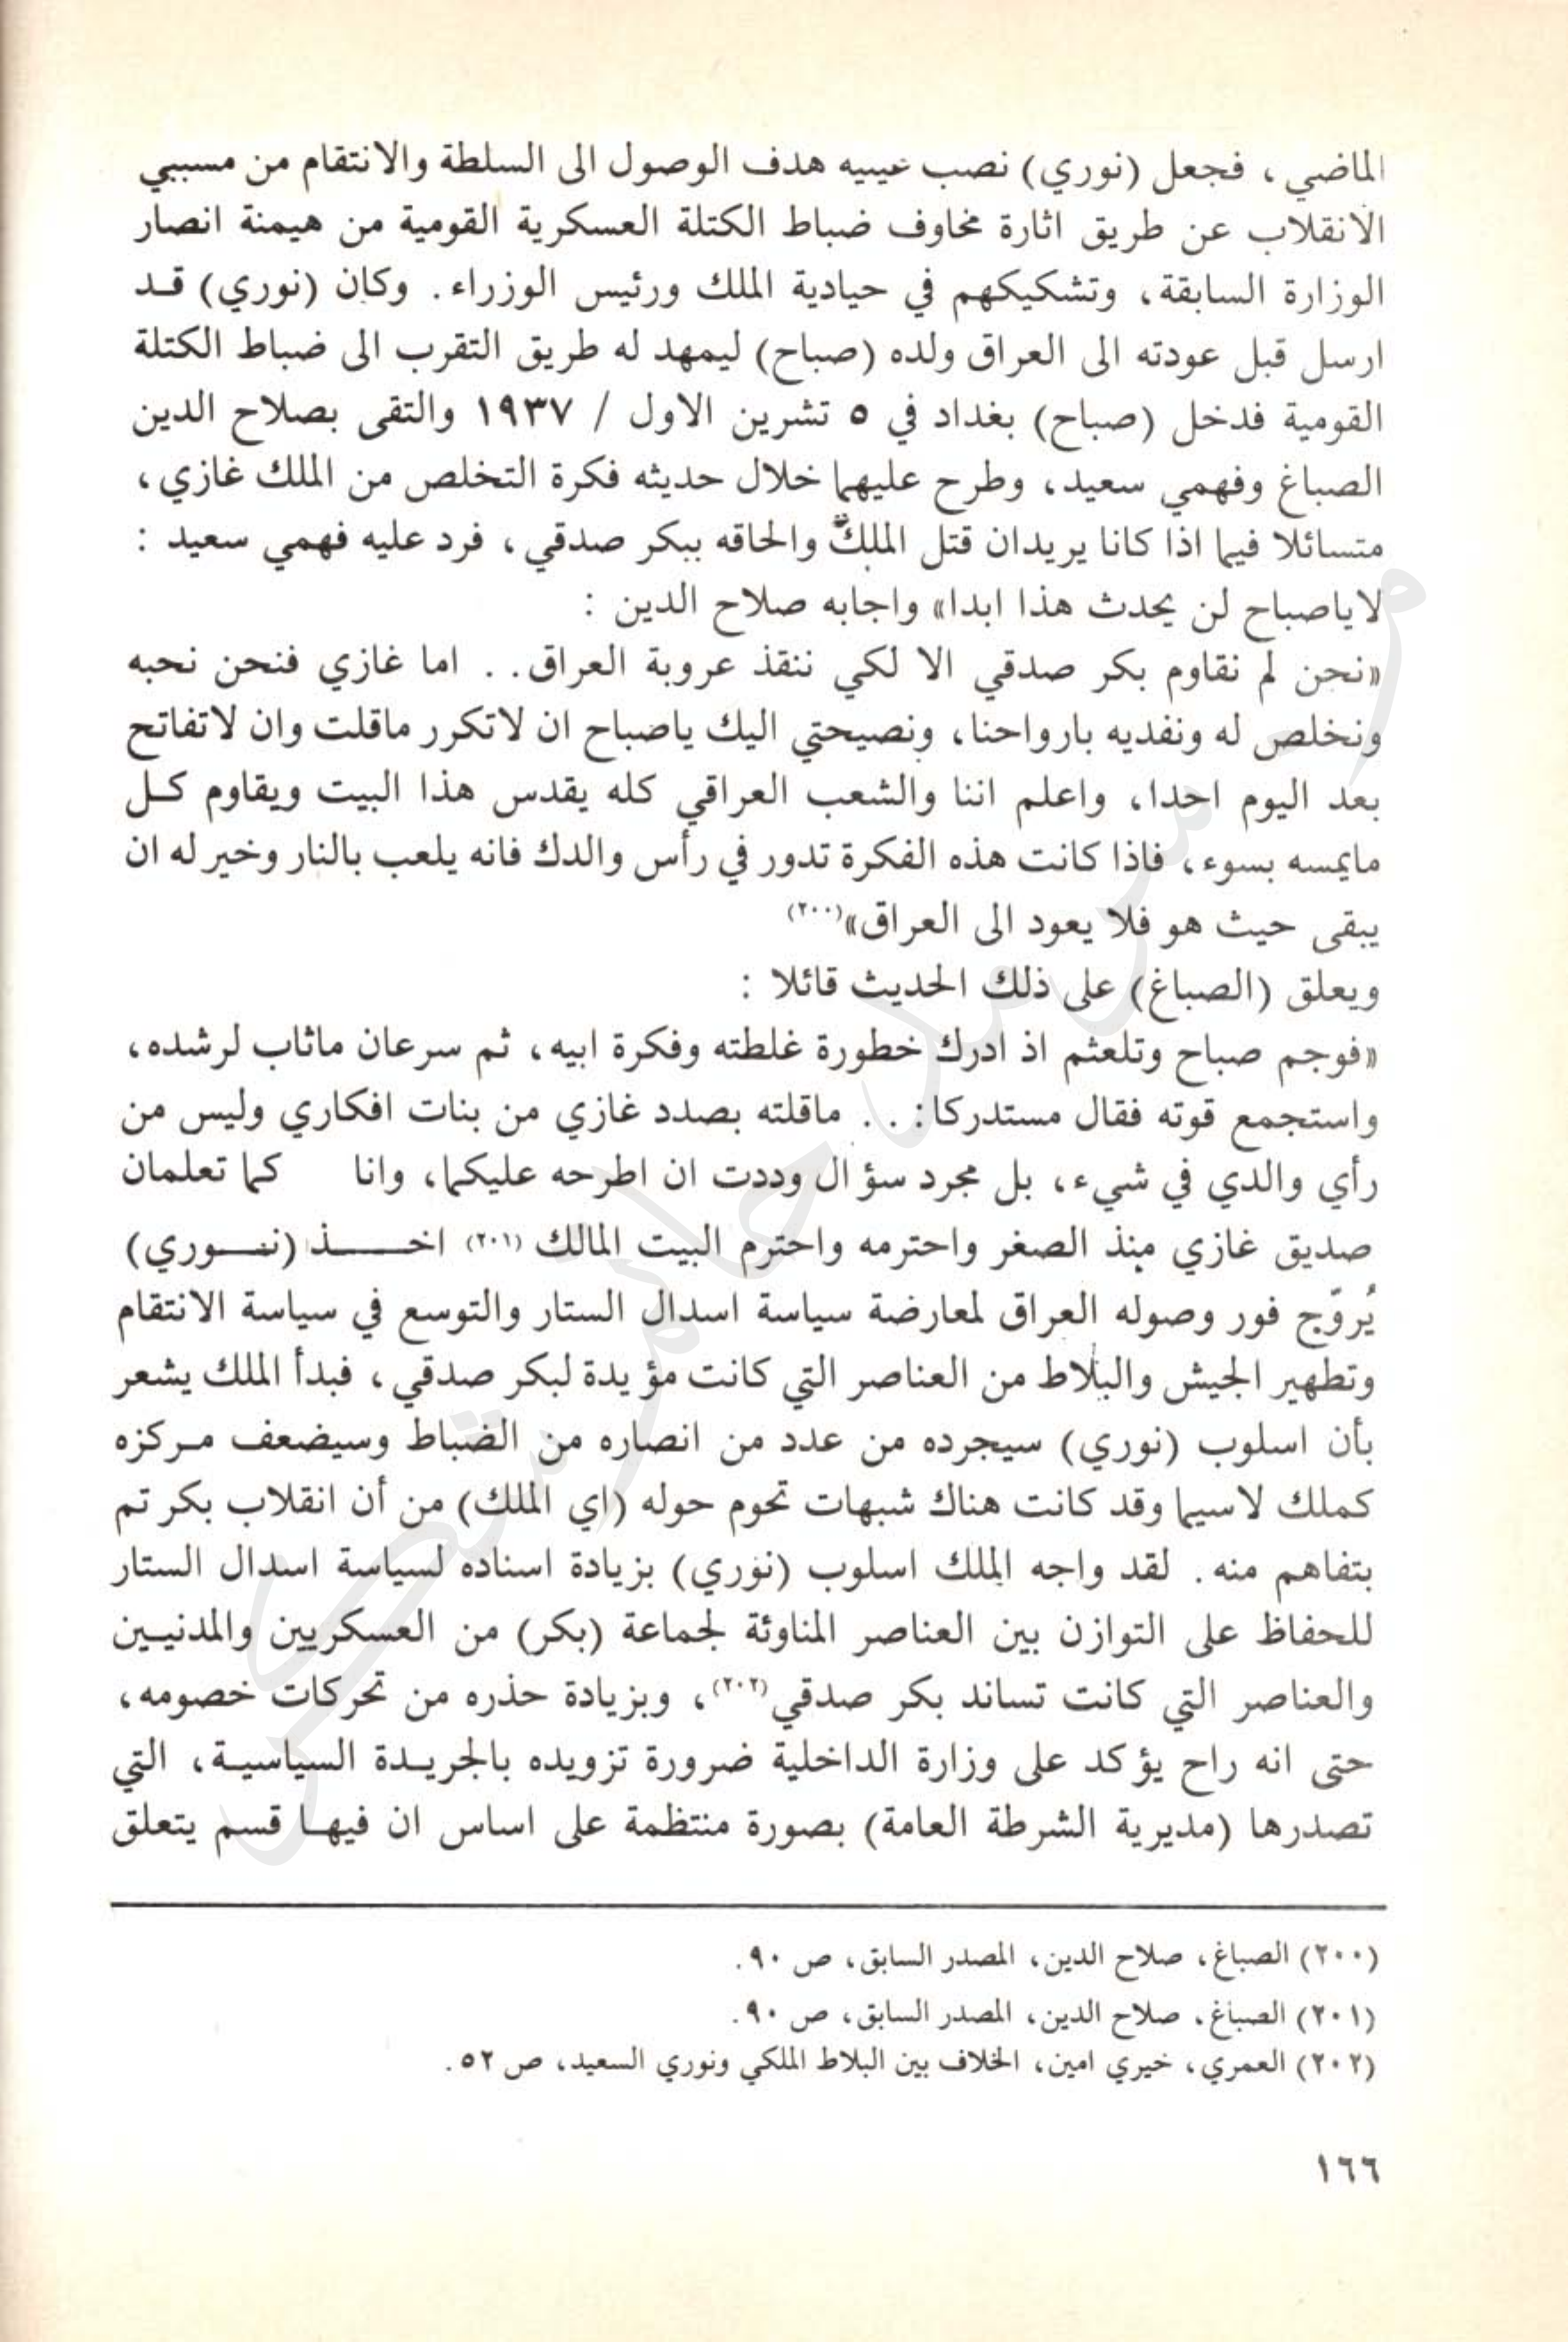 الماضي، فجعل (نوري) نصب عينيه هدف الوصول الى السلطة والانتقام من مسببي
الانقلاب عن طريق اثارة مخاوف ضباط الكتلة العسكرية القومية من هيمنة انصار
الوزارة السابقة، وتشكيكهم في حيادية الملك ورئيس الوزراء. وكان (نوري) قد
ارسل قبل عودته الى العراق ولده (صباح) ليمهد له طريق التقرب الى ضباط الكتلة
القومية فدخل (صباح) بغداد في ٥ تشرين الاول / ١٩٣٧ والتقى بصلاح الدين
الصباغ وفهمي سعيد، وطرح عليهما خلال حديثه فكرة التخلص من الملك غازي،
متسائلا فيما اذا كانا يريدان قتل الملك والحاقه ببكر صدقي، فرد عليه فهمي سعيد :
لاياصباح لن يحدث هذا ابدا» واجابه صلاح الدين :
«نحن لم نقاوم بكر صدقي الا لكي ننقذ عروبة العراق.. اما غازي فنحن نحبه
ونخلص له ونفديه بارواحنا، ونصيحتي اليك ياصباح ان لاتكرر ماقلت وان لاتفاتح
بعد اليوم احدا، واعلم اننا والشعب العراقي كله يقدس هذا البيت ويقاوم كل
مايمسه بسوء، فاذا كانت هذه الفكرة تدور في رأس والدك فانه يلعب بالنار وخير له ان
يبقى حيث هو فلا يعود الى العراق»(٢٠٠)
ويعلق (الصباغ) على ذلك الحديث قائلا :
«فوجم صباح وتلعثم اذ ادرك خطورة غلطته وفكرة ابيه، ثم سرعان ماثاب لرشده،
واستجمع قوته فقال مستدركا: .. ماقلته بصدد غازي من بنات افكاري وليس من
رأي والدي في شيء، بل مجرد سؤال وددت ان اطرحه عليكما، وانا كما تعلمان
صديق غازي منذ الصغر واحترمه واحترم البيت المالك (٢٠١) اخـــــذ (نـــوري)
يُروّج فور وصوله العراق لمعارضة سياسة اسدال الستار والتوسع في سياسة الانتقام
وتطهير الجيش والبلاط من العناصر التي كانت مؤيدة لبكر صدقي، فبدأ الملك يشعر
بأن اسلوب (نوري) سيجرده من عدد من انصاره من الضباط وسيضعف مركزه
كملك لاسيما وقد كانت هناك شبهات تحوم حوله (اي الملك) من أن انقلاب بكر تم
بتفاهم منه. لقد واجه الملك اسلوب (نوري) بزيادة اسناده لسياسة اسدال الستار
للحفاظ على التوازن بين العناصر المناوئة لجماعة (بكر) من العسكريين والمدنيين
والعناصر التي كانت تساند بكر صدقي(٢٠٢)، وبزيادة حذره من تحركات خصومه،
حتى انه راح يؤكد على وزارة الداخلية ضرورة تزويده بالجريدة السياسية، التي
تصدرها (مديرية الشرطة العامة) بصورة منتظمة على اساس ان فيها قسم يتعلق
(٢٠٠) الصباغ، صلاح الدين، المصدر السابق، ص ٩٠.
(٢٠١) الصباغ، صلاح الدين، المصدر السابق، ص ٩٠.
(٢٠٢) العمري، خيري امين، الخلاف بين البلاط الملكي ونوري السعيد، ص ٥٢.
١٦٦